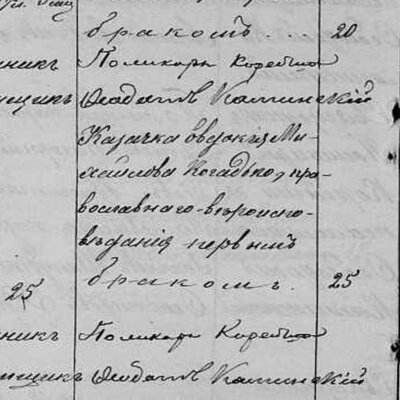 бракомъ . . . 20
никъ Поликарпъ Коребло
нщикъ Феодотъ Каминскій
Казачка Евдокія Ми-
хайлова Когадько, пра-
вославнаго вѣроиспо-
вѣданія первымъ
25 бракомъ. 25
никъ Поликарпъ
нщикъ Феодотъ Каминскій